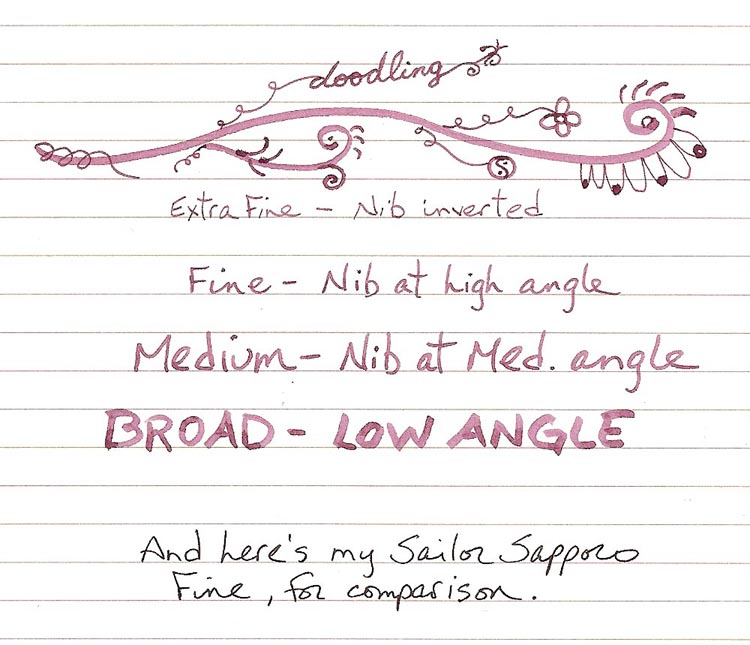 doodling
Extra Fine - Nib inverted
Fine - Nib at high angle
Medium - Nib at Med. angle
BROAD - LOW ANGLE
And here's my Sailor Sapporo
Fine, for comparison.